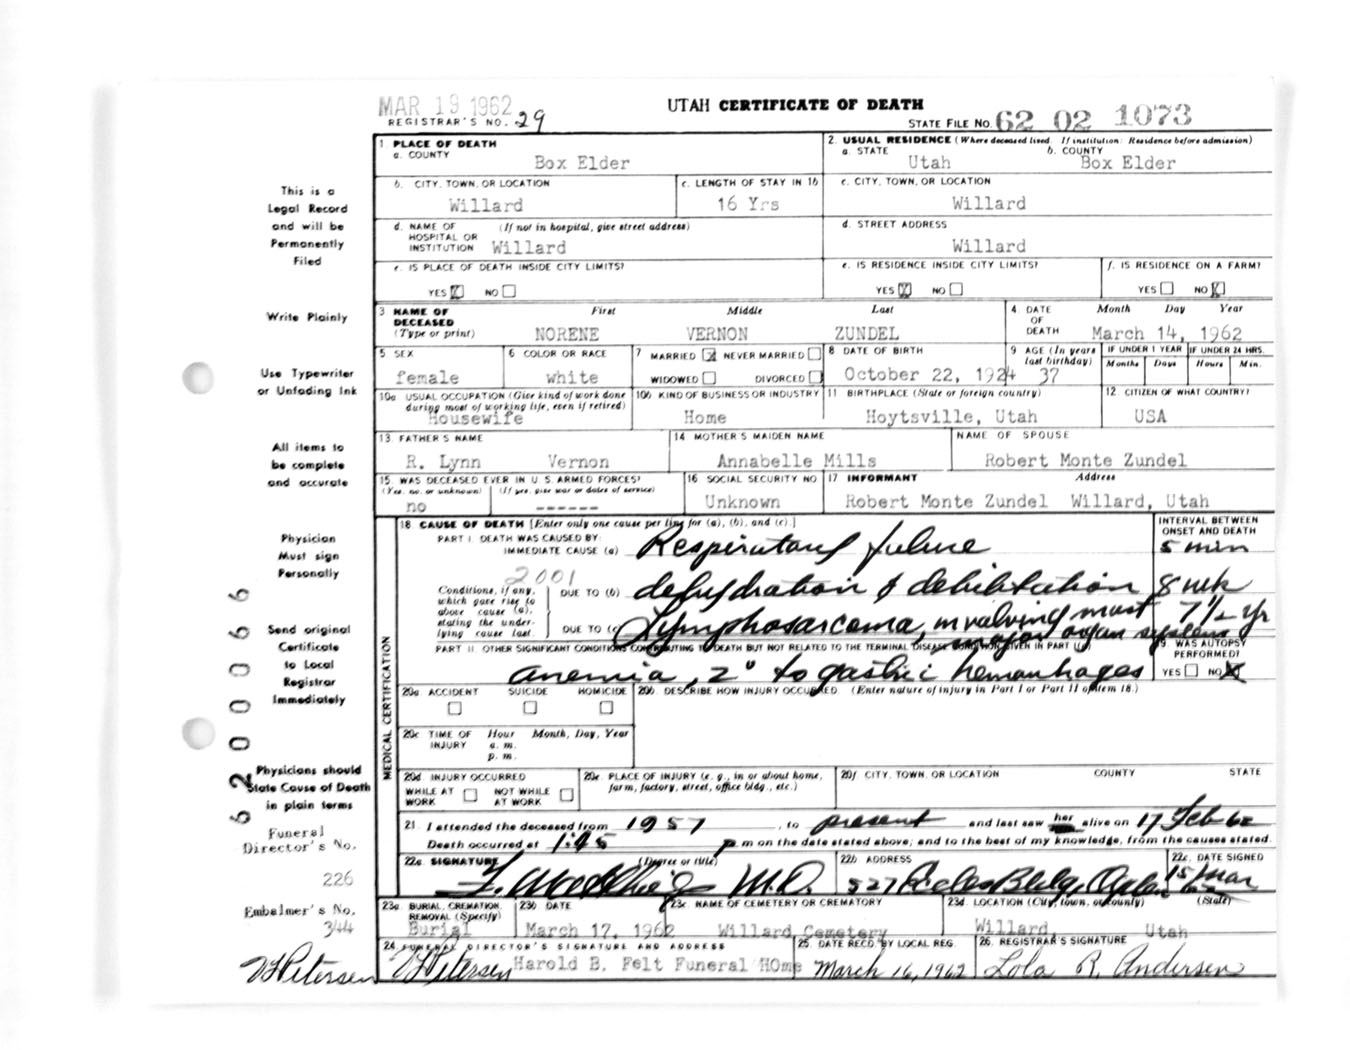 MAR 19 1962
UTAH CERTIFICATE OF DEATH
REGISTRAR'S NO. 29
STATE FILE NO. 62 02 1073
This is a
Legal Record
and will be
Permanently
Filed
Write Plainly
Use Typewriter
or Unfading Ink
All items to
be complete
and accurate
Physician
Must sign
Personally
Send original
Certificate
to Local
Registrar
Immediately
Physicians should
State Cause of Death
in plain terms
Funeral
Director's No.
226
Embalmer's No.
344
V S Petersen
62000066
1. PLACE OF DEATH
a. COUNTY
Box Elder
2. USUAL RESIDENCE (Where deceased lived. If institution: Residence before admission)
a. STATE b. COUNTY
Utah Box Elder
b. CITY, TOWN, OR LOCATION
Willard
c. LENGTH OF STAY IN 1b
16 Yrs
c. CITY, TOWN, OR LOCATION
Willard
d. NAME OF (If not in hospital, give street address)
HOSPITAL OR
INSTITUTION Willard
d. STREET ADDRESS
Willard
e. IS PLACE OF DEATH INSIDE CITY LIMITS?
YES X NO
e. IS RESIDENCE INSIDE CITY LIMITS?
YES X NO
f. IS RESIDENCE ON A FARM?
YES NO X
3 NAME OF First Middle Last
DECEASED
(Type or print) NORENE VERNON ZUNDEL
4. DATE Month Day Year
OF
DEATH March 14, 1962
5 SEX
female
6 COLOR OR RACE
white
7 MARRIED X NEVER MARRIED
WIDOWED DIVORCED
8 DATE OF BIRTH
October 22, 1924
9 AGE (In years
last birthday)
37
IF UNDER 1 YEAR IF UNDER 24 HRS.
Months Days Hours Min.
10a USUAL OCCUPATION (Give kind of work done
during most of working life, even if retired)
Housewife
10b KIND OF BUSINESS OR INDUSTRY
Home
11 BIRTHPLACE (State or foreign country)
Hoytsville, Utah
12. CITIZEN OF WHAT COUNTRY?
USA
13. FATHER'S NAME
R. Lynn Vernon
14 MOTHER'S MAIDEN NAME
Annabelle Mills
NAME OF SPOUSE
Robert Monte Zundel
15. WAS DECEASED EVER IN U.S. ARMED FORCES?
(Yes, no, or unknown) (If yes, give war or dates of service)
no ------
16 SOCIAL SECURITY NO
Unknown
17 INFORMANT Address
Robert Monte Zundel Willard, Utah
MEDICAL CERTIFICATION
18 CAUSE OF DEATH [Enter only one cause per line for (a), (b), and (c).]
INTERVAL BETWEEN
ONSET AND DEATH
PART I. DEATH WAS CAUSED BY:
IMMEDIATE CAUSE (a) Respiratory failure 5 min
2001
Conditions, if any,
which gave rise to
above cause (a),
stating the under-
lying cause last.
DUE TO (b) dehydration & debilitation 8 wk
DUE TO (c) Lymphosarcoma, involving most 7 1/2 yr
major organ systems
PART II. OTHER SIGNIFICANT CONDITIONS CONTRIBUTING TO DEATH BUT NOT RELATED TO THE TERMINAL DISEASE CONDITION GIVEN IN PART I(a)
anemia, 2° to gastric hemorrhages
19. WAS AUTOPSY
PERFORMED?
YES NO X
20a ACCIDENT SUICIDE HOMICIDE
20b. DESCRIBE HOW INJURY OCCURRED. (Enter nature of injury in Part I or Part II of item 18.)
20c TIME OF Hour Month, Day, Year
INJURY a. m.
p. m.
20d. INJURY OCCURRED
WHILE AT NOT WHILE
WORK AT WORK
20e. PLACE OF INJURY (e. g., in or about home,
farm, factory, street, office bldg., etc.)
20f. CITY, TOWN, OR LOCATION COUNTY STATE
21. I attended the deceased from 1957, to present and last saw her alive on 17 Feb 62
Death occurred at 1:45 p. m on the date stated above; and to the best of my knowledge, from the causes stated.
22a. SIGNATURE (Degree or title)
M.D.
22b ADDRESS
527 Eccles Bldg Ogden
22c. DATE SIGNED
15 Mar
62
23a. BURIAL, CREMATION,
REMOVAL (Specify)
Burial
23b DATE
March 17, 1962
23c. NAME OF CEMETERY OR CREMATORY
Willard Cemetery
23d. LOCATION (City, town, or county) (State)
Willard, Utah
24. FUNERAL DIRECTOR'S SIGNATURE AND ADDRESS
V S Petersen Harold B. Felt Funeral HOme
25. DATE RECD. BY LOCAL REG.
March 16, 1962
26. REGISTRAR'S SIGNATURE
Lola R. Andersen